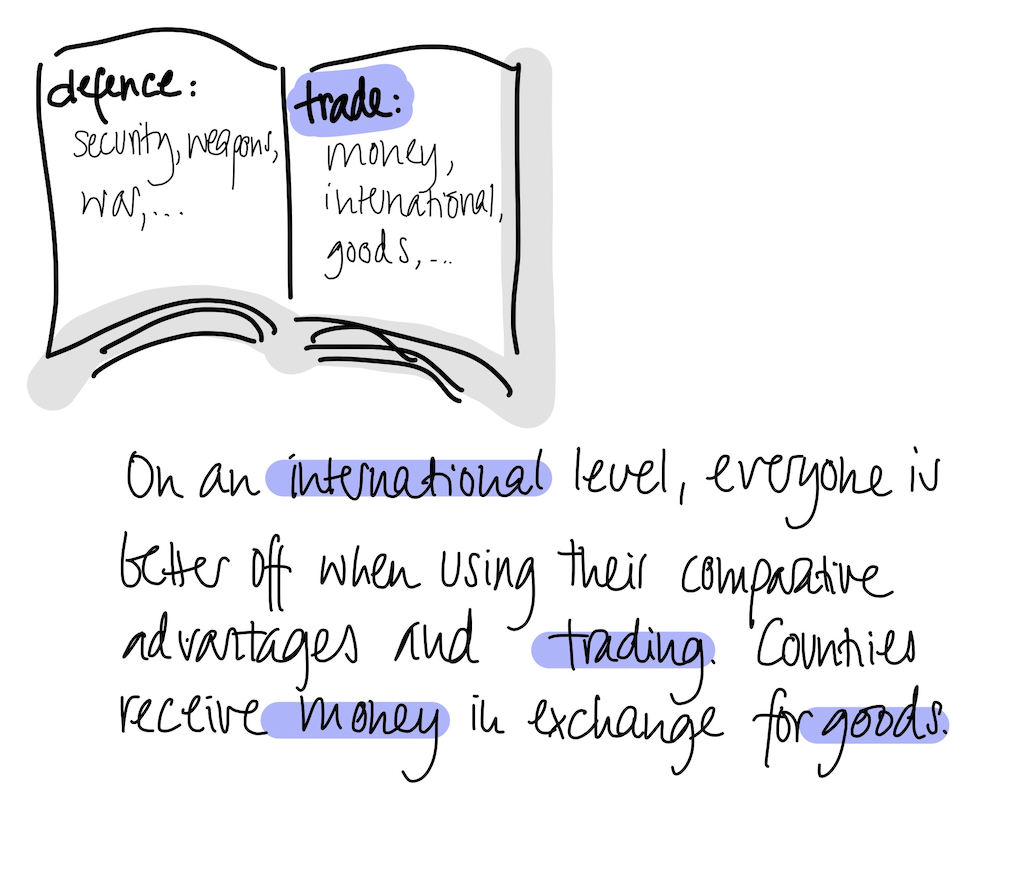 defence:
security, weapons,
war,...
trade:
money,
international,
goods,...
On an international level, everyone is
better off when using their comparative
advantages and trading. Counties
receive money in exchange for goods.